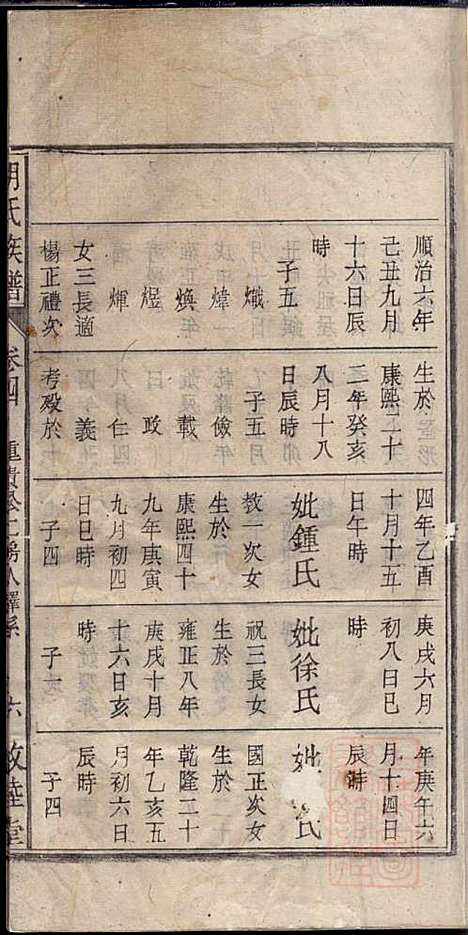 順治六年
己丑九月
十六日辰
時
子五
熾
煒
煥
煜
煇
女三長適
楊正禮次
生於
康熙二十
二年癸亥
八月十八
日辰時
子五
儉
載
政
仁
義
考歿於
四年乙酉
十月十五
日午時
妣鍾氏
教一次女
生於
康熙四十
九年庚寅
九月初四
日巳時
子四
庚戌六月
初八日巳
時
妣徐氏
祝三長女
生於
雍正八年
庚戌十月
十六日亥
時
子一
年庚午六
月十四日
辰時
妣 氏
國正次女
生於
乾隆二十
年乙亥五
月初六日
辰時
子四
氏族譜
卷四
六
敦睦堂